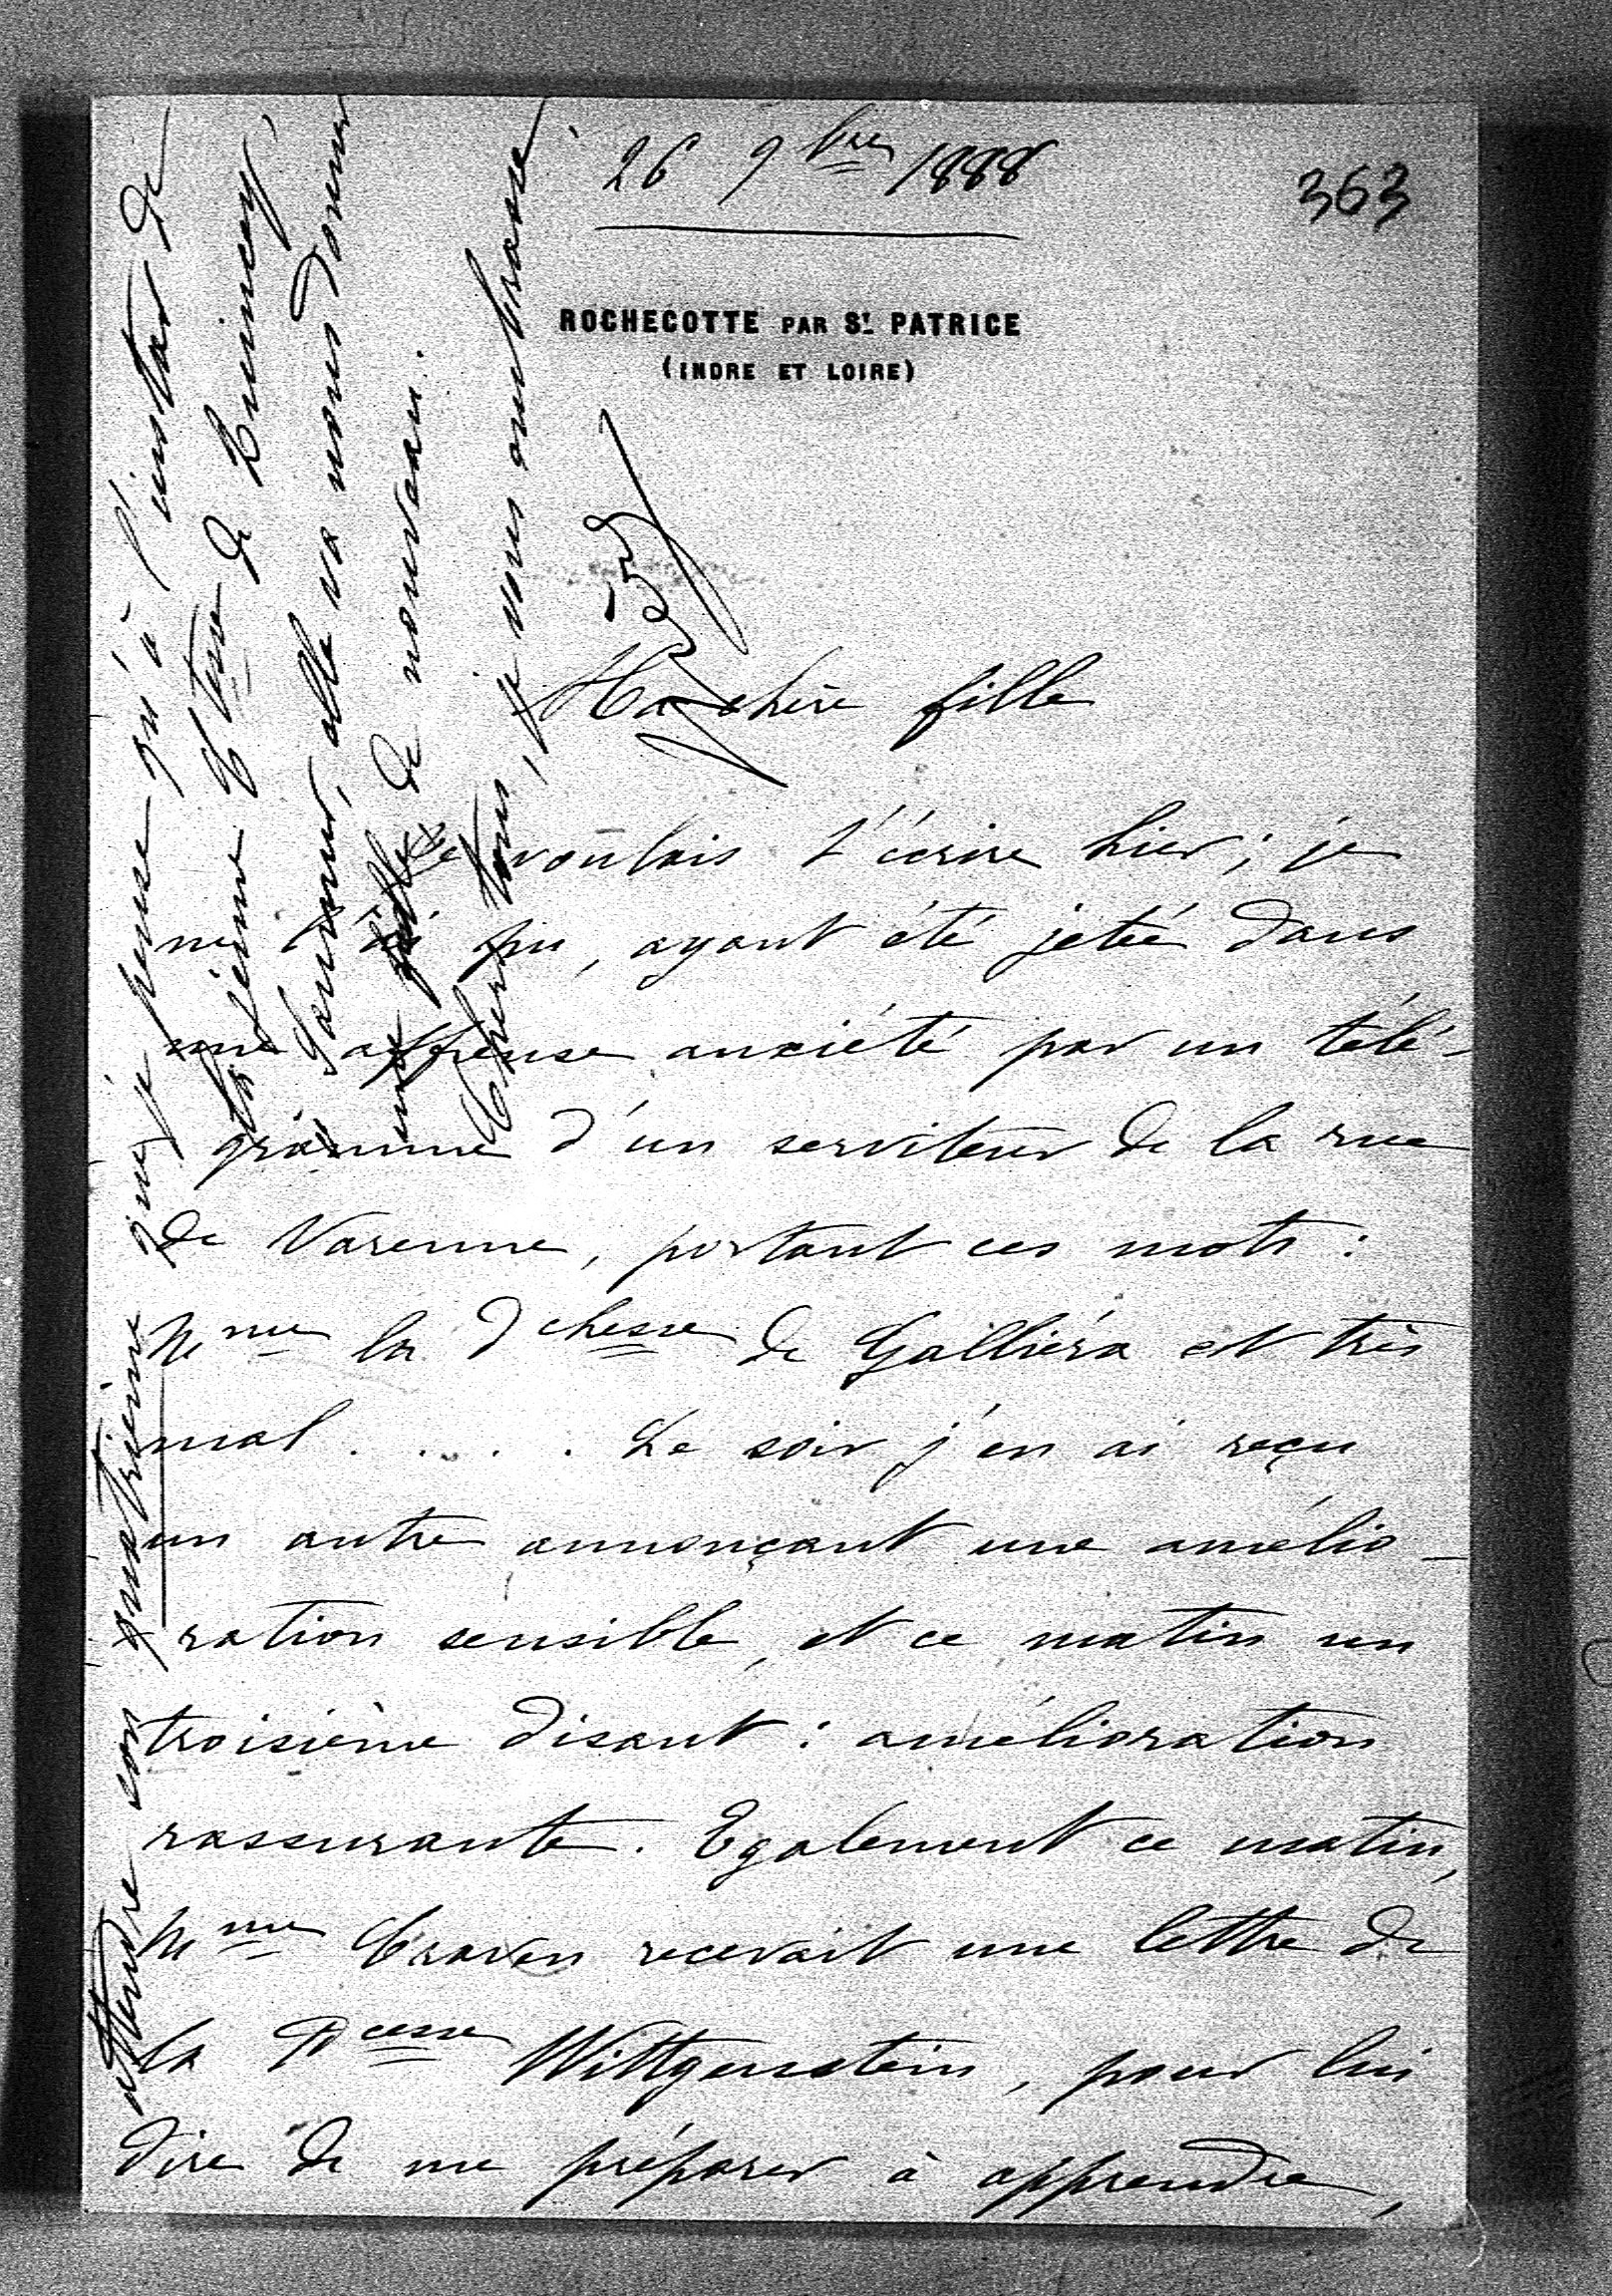 26 9bre 1888
363
ROCHECOTTE PAR St. PATRICE
(INDRE ET LOIRE)
Ma chère fille
Je voulais t'écrire hier ; je
ne l'ai pu, ayant été jetée dans
une affreuse anxiété par un télé-
gramme d'un serviteur de la rue
de Varenne, portant ces mots :
Mme la Dchesse de Galliéra est très
mal . . . . . Le soir j'en ai reçu
un autre annonçant une amélio-
ration sensible, et ce matin un
troisième disant : amélioration
rassurante. Egalement ce matin,
Mme Craven recevait une lettre de
la Pcesse Wittgenstein, pour lui
dire de me préparer à apprendre,
attendre son quatrième que je pense qu'à l'instar de
la jeune Ctesse de
à Saumur, elle va nous donner
une fille de nouveau.
Chers tous, je vous embrasse